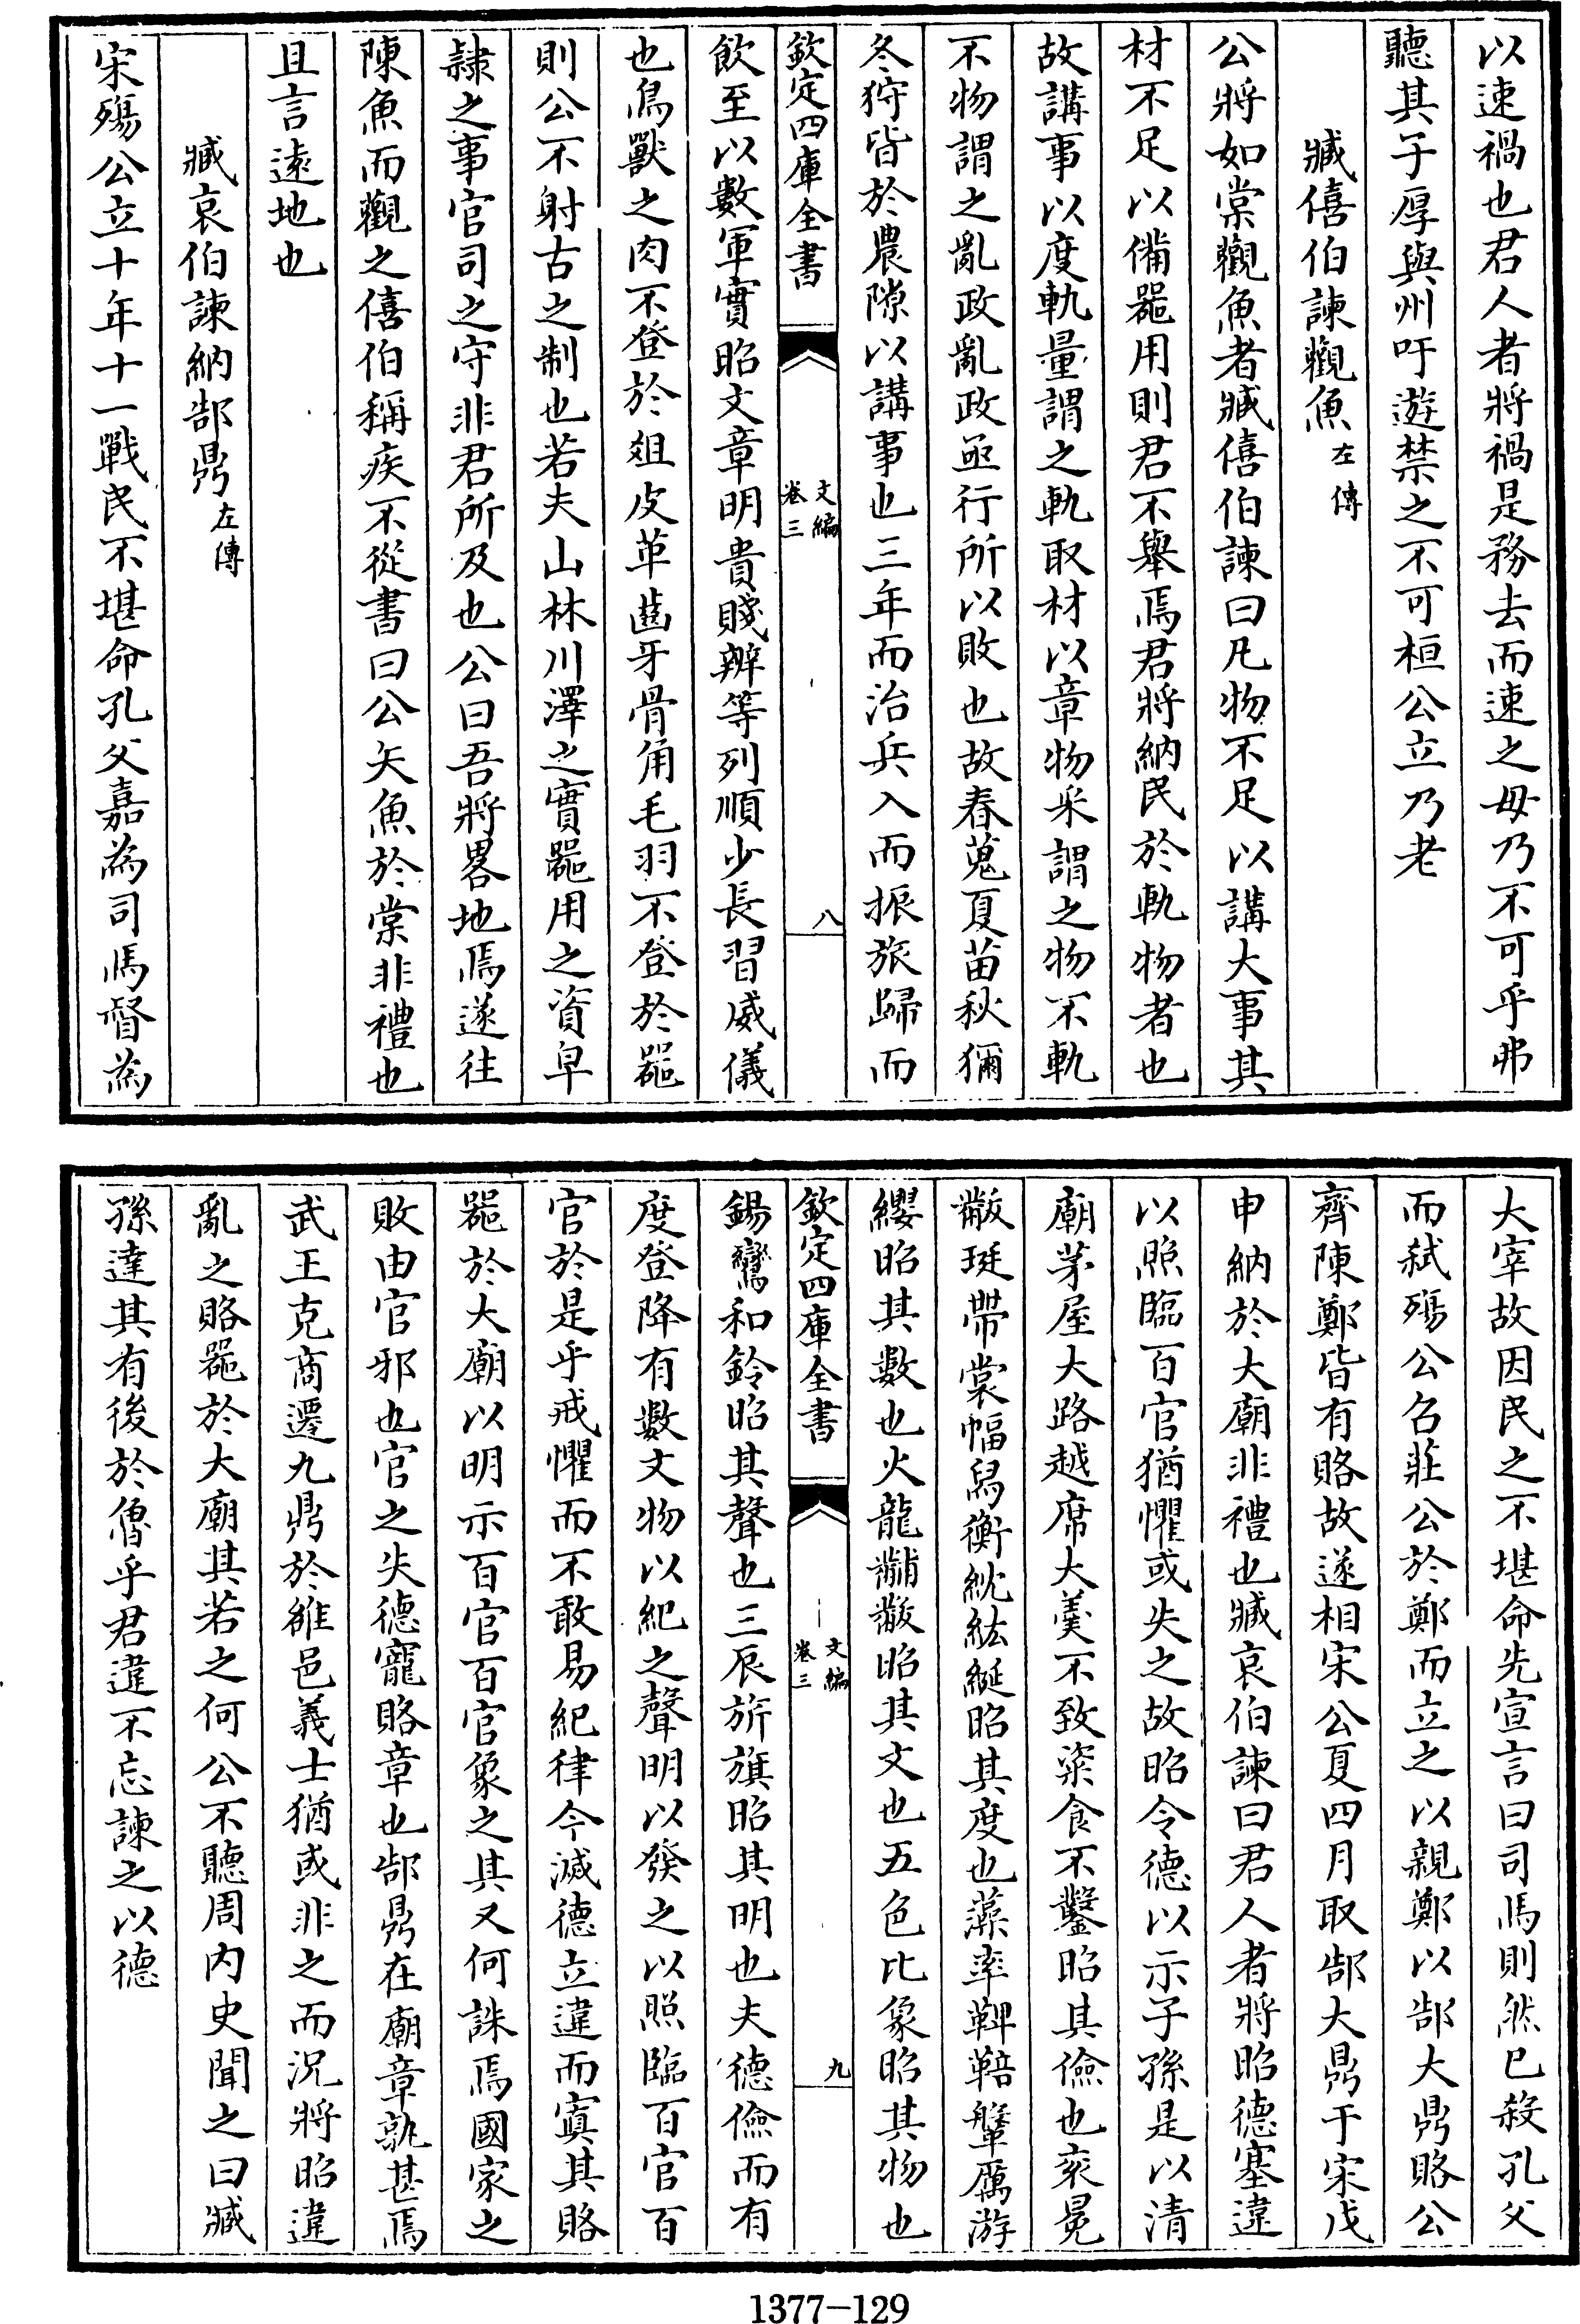 以速禍也君人者將禍是務去而速之毋乃不可乎弗
聽其子厚與州吁遊禁之不可桓公立乃老
臧僖伯諫觀魚左傳
公將如棠觀魚者臧僖伯諫曰凡物不足以講大事其
材不足以備器用則君不舉焉君將納民於軌物者也
故講事以度軌量謂之軌取材以章物采謂之物不軌
不物謂之亂政亂政亟行所以敗也故春蒐夏苗秋獮
冬狩皆於農隙以講事也三年而治兵入而振旅歸而
欽定四庫全書
文編
卷三
八
飲至以數軍實昭文章明貴賤辨等列順少長習威儀
也鳥獸之肉不登於俎皮革齒牙骨角毛羽不登於器
則公不射古之制也若夫山林川澤之實器用之資皁
隸之事官司之守非君所及也公曰吾將畧地焉遂往
陳魚而觀之僖伯稱疾不從書曰公矢魚於棠非禮也
且言遠地也
臧哀伯諫納郜鼎左傳
宋殤公立十年十一戰民不堪命孔父嘉為司馬督為
大宰故因民之不堪命先宣言曰司馬則然已殺孔父
而弑殤公召莊公於鄭而立之以親鄭以郜大鼎賂公
齊陳鄭皆有賂故遂相宋公夏四月取郜大鼎于宋戊
申納於大廟非禮也臧哀伯諫曰君人者將昭德塞違
以照臨百官猶懼或失之故昭令德以示子孫是以清
廟茅屋大路越席大羹不致粢食不鑿昭其儉也衮冕
黻珽帶裳幅舄衡紞紘綖昭其度也藻率鞞鞛鞶厲游
纓昭其數也火龍黼黻昭其文也五色比象昭其物也
欽定四庫全書
文編
卷三
九
鍚鸞和鈴昭其聲也三辰旂旗昭其明也夫德儉而有
度登降有數文物以紀之聲明以發之以照臨百官百
官於是乎戒懼而不敢易紀律今滅德立違而寘其賂
器於大廟以明示百官百官象之其又何誅焉國家之
敗由官邪也官之失德寵賂章也郜鼎在廟章孰甚焉
武王克商遷九鼎於雒邑義士猶或非之而況將昭違
亂之賂器於大廟其若之何公不聽周内史聞之曰臧
孫達其有後於魯乎君違不忘諫之以德
1377-129